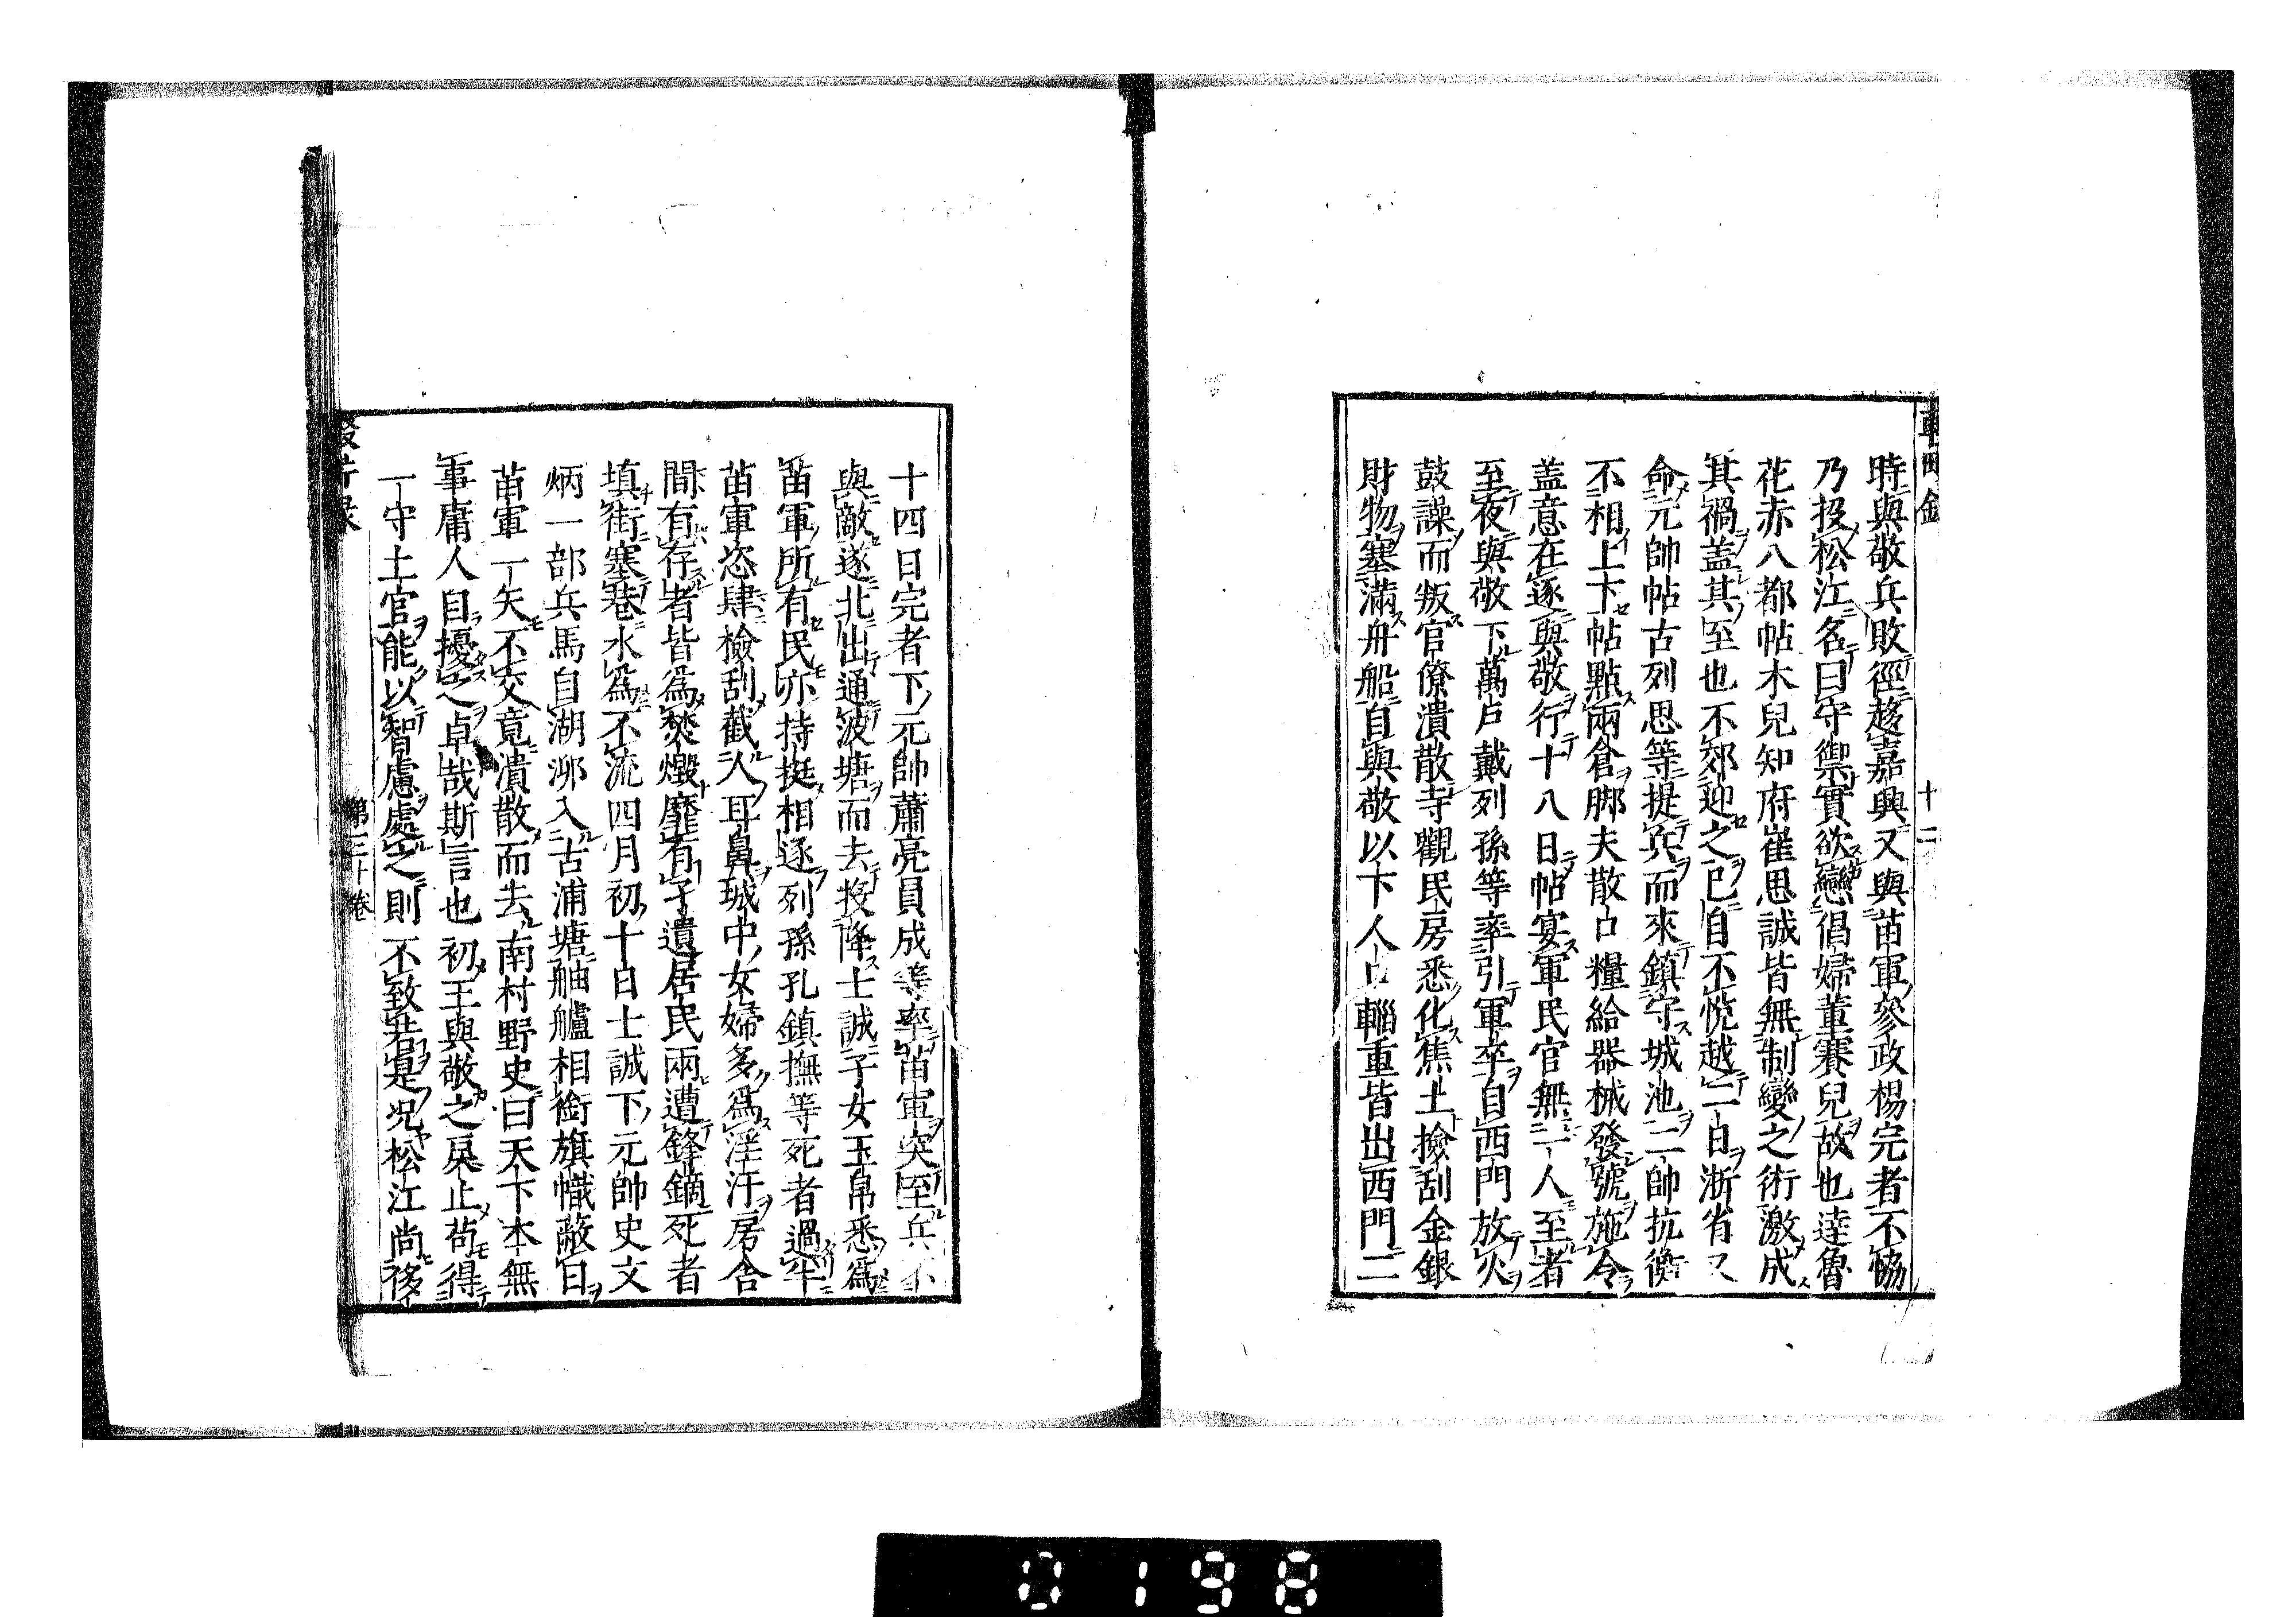 時與敬兵敗徑趍嘉興又與苗軍參政楊完者不恊
乃投松江名曰守禦實欲戀倡婦董賽兒故也達魯
花赤八都帖木兒知府崔思誠皆無制變之術激成
其禍盖其至也不郊迎之已自不悅越一日浙省又
命元帥帖古列思等提兵而來鎮守城池二帥抗衡
不相上下帖點兩倉脚夫散口糧給器械發號施令
盖意在逐與敬行十八日帖宴軍民官無一人至者
至夜與敬下萬户戴列孫等率引軍卒自西門放火
鼓譟而叛官僚潰散寺觀民房悉化焦土撿刮金銀
財物塞滿舟船自與敬以下人口輜重皆出西門二
十四日完者下元帥蕭亮員成等率苗軍突至兵不
與敵遂北出通波塘而去投降士誠子女玉帛悉爲
苗軍所有民亦持挺相逐列孫孔鎮撫等死者過半
苗軍恣肆檢刮截人耳鼻城中女婦多爲淫汙房舍
間有存者皆爲焚燬靡有孑遺居民兩遭鋒鏑死者
填街塞巷水爲不流四月初十日士誠下元帥史文
炳一部兵馬自湖泖入古浦塘舳艫相銜旗幟蔽日
苗軍一矢不交竟潰散而去南村野史曰天下本無
事庸人自擾之卓哉斯言也初王與敬之戾止苟得
一守土官能以智慮處之則不致若是况松江尚移
第三十卷
十二
0198